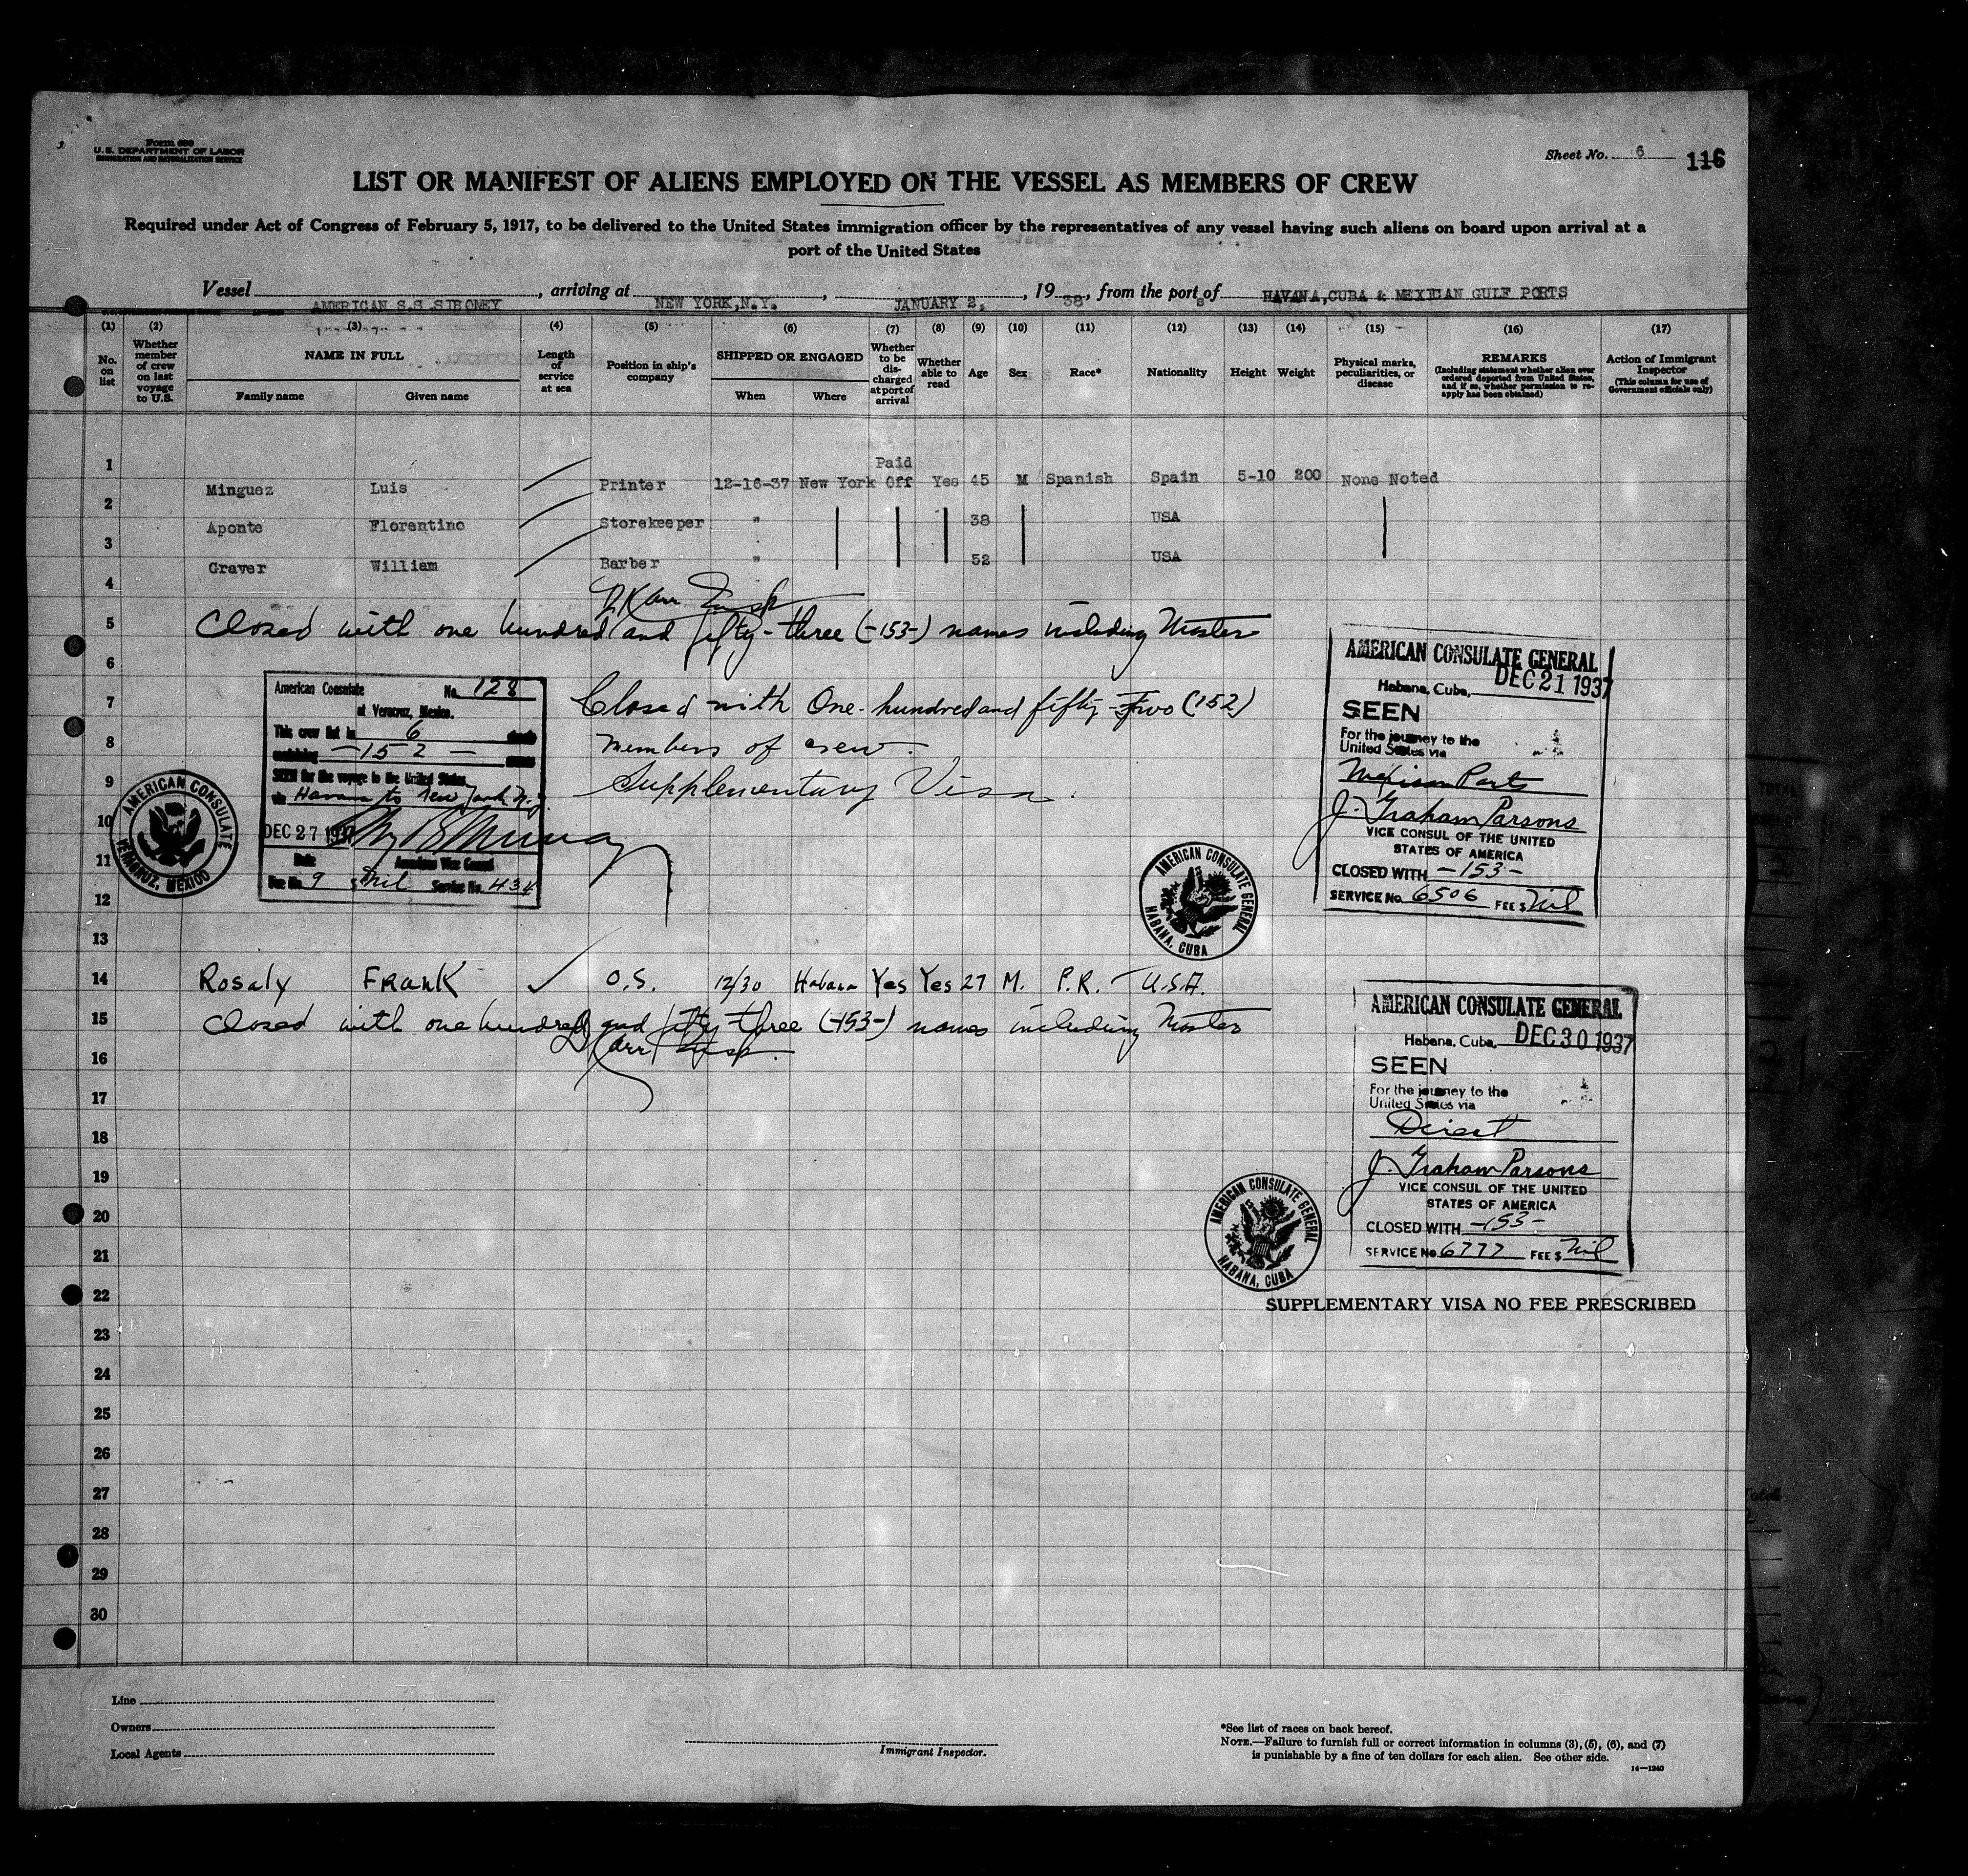 Form 680
U. S. DEPARTMENT OF LABOR
IMMIGRATION AND NATURALIZATION SERVICE
Sheet No. 6
116
LIST OR MANIFEST OF ALIENS EMPLOYED ON THE VESSEL AS MEMBERS OF CREW
Required under Act of Congress of February 5, 1917, to be delivered to the United States immigration officer by the representatives of any vessel having such aliens on board upon arrival at a
port of the United States
Vessel AMERICAN S.S.SIBONEY, arriving at NEW YORK,N.Y., JANUARY 2, 1938, from the ports of HAVANA,CUBA & MEXICAN GULF PORTS
(1) (2) (3) (4) (5) (6) (7) (8) (9) (10) (11) (12) (13) (14) (15) (16) (17)
No. on list
Whether member of crew on last voyage to U.S.
NAME IN FULL
Family name
Given name
Length of service at sea
Position in ship's company
SHIPPED OR ENGAGED
When
Where
Whether to be discharged at port of arrival
Whether able to read
Age
Sex
Race*
Nationality
Height
Weight
Physical marks, peculiarities, or disease
REMARKS
(Including statement whether alien ever ordered deported from United States, and if so, whether permission to reapply has been obtained)
Action of Immigrant Inspector
(This column for use of Government officials only)
1 Minguez Luis Printer 12-16-37 New York Paid Off Yes 45 M Spanish Spain 5-10 200 None Noted
2 Aponte Florentino Storekeeper " 38 USA
3 Graver William Barber " 52 USA
4
5 Closed with one hundred and fifty-three (-153-) names including Master
6
7 Closed with One-hundred and fifty-two (152)
8 members of crew.
9 Supplementary Visa.
10
11
12
13
American Consulate No. 128
at Veracruz, Mexico.
This crew list in 6 sheets
containing -152- names
SEEN for the voyage to the United States,
via Havana to New York N.Y.
DEC 27 1937
Date American Vice Consul
Fee No. 9 $ nil Service No. 434
AMERICAN CONSULATE
VERACRUZ, MEXICO
AMERICAN CONSULATE GENERAL
DEC 21 1937
Habana, Cuba,
SEEN
For the journey to the
United States via
Mexican Ports
J. Graham Parsons
VICE CONSUL OF THE UNITED
STATES OF AMERICA
CLOSED WITH -153-
SERVICE No. 6506 FEE $ Nil
AMERICAN CONSULATE GENERAL
HABANA, CUBA
14 Rosaly Frank O.S. 12/30 Habana Yes Yes 27 M. P.R. U.S.A.
15 Closed with one hundred and fifty three (-153-) names including Master
16
17
18
19
20
21
22
AMERICAN CONSULATE GENERAL
Habana, Cuba, DEC 30 1937
SEEN
For the journey to the
United States via
Direct
J. Graham Parsons
VICE CONSUL OF THE UNITED
STATES OF AMERICA
CLOSED WITH -153-
SERVICE No. 6777 FEE $ Nil
AMERICAN CONSULATE GENERAL
HABANA, CUBA
SUPPLEMENTARY VISA NO FEE PRESCRIBED
23
24
25
26
27
28
29
30
Line
Owners
Local Agents
Immigrant Inspector.
*See list of races on back hereof.
NOTE.—Failure to furnish full or correct information in columns (3), (5), (6), and (7)
is punishable by a fine of ten dollars for each alien. See other side.
14—1240